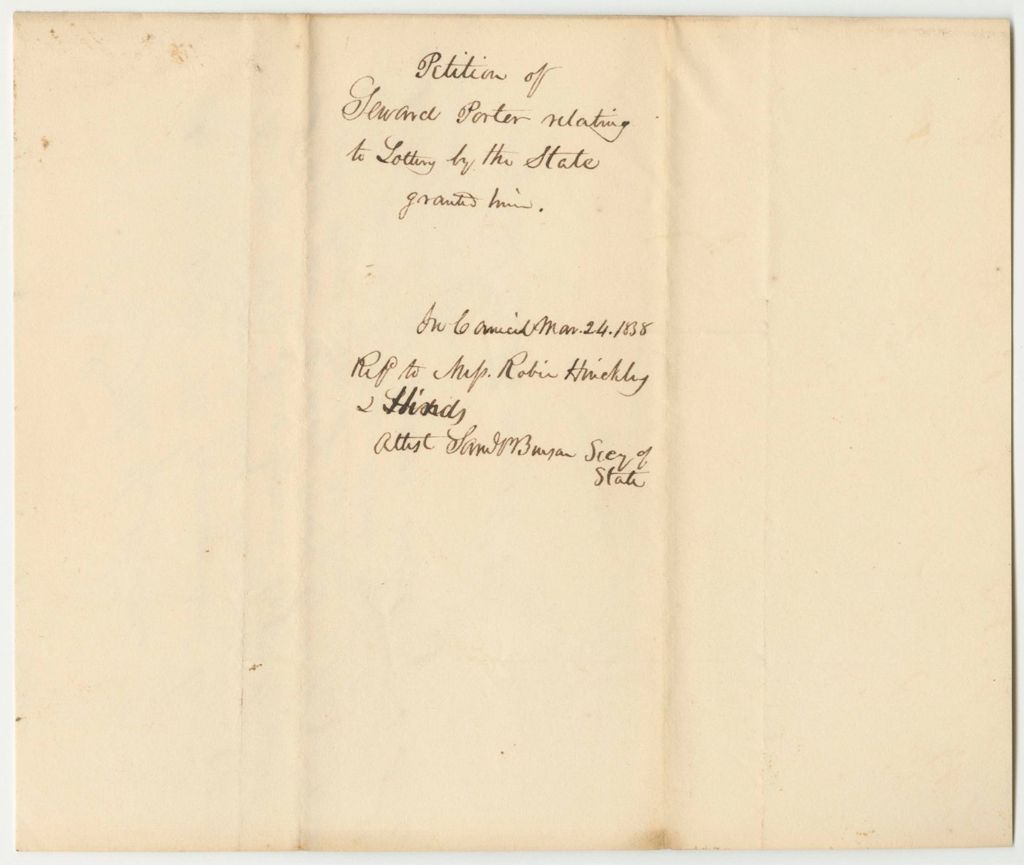 Petition of
Seward Porter relating
to Lottery by the State
granted him.
In Council Mar. 24. 1838
Refd to Mess. Robie Hinckley
& Hinds
Attest Saml P Benson Secy of
State